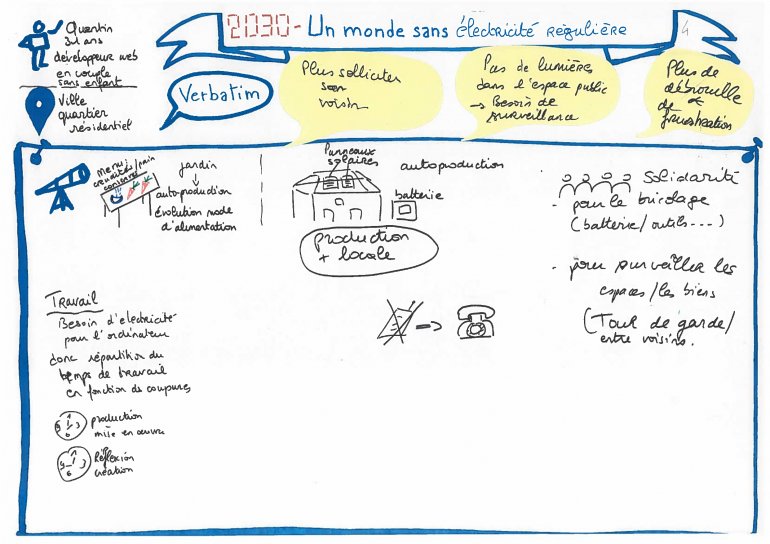 2030 - Un monde sans électricité régulière
4
Quentin
31 ans
développeur web
en couple
sans enfant
Ville
quartier
résidentiel
Verbatim
Plus solliciter
son
voisin
Pas de lumières
dans l'espace public
→ Besoin de
surveillance
Plus de
débrouille
&
de frustration
Menu:
crudités/pain
conserves
jardin
↓
autoproduction
évolution mode
d'alimentation
Panneaux
solaires
autoproduction
batterie
production
+ locale
solidarité
- pour le bricolage
(batterie/outils...)
- pour surveiller les
espaces/les biens
(Tour de garde/
entre voisins.
Travail
Besoin d'électricité
pour l'ordinateur
donc répartition du
temps de travail
en fonction des coupures
production
mise en œuvre
Réflexion
création